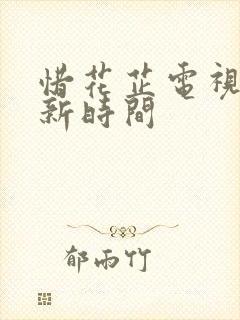 惜花芷電視
新時間
郁雨竹